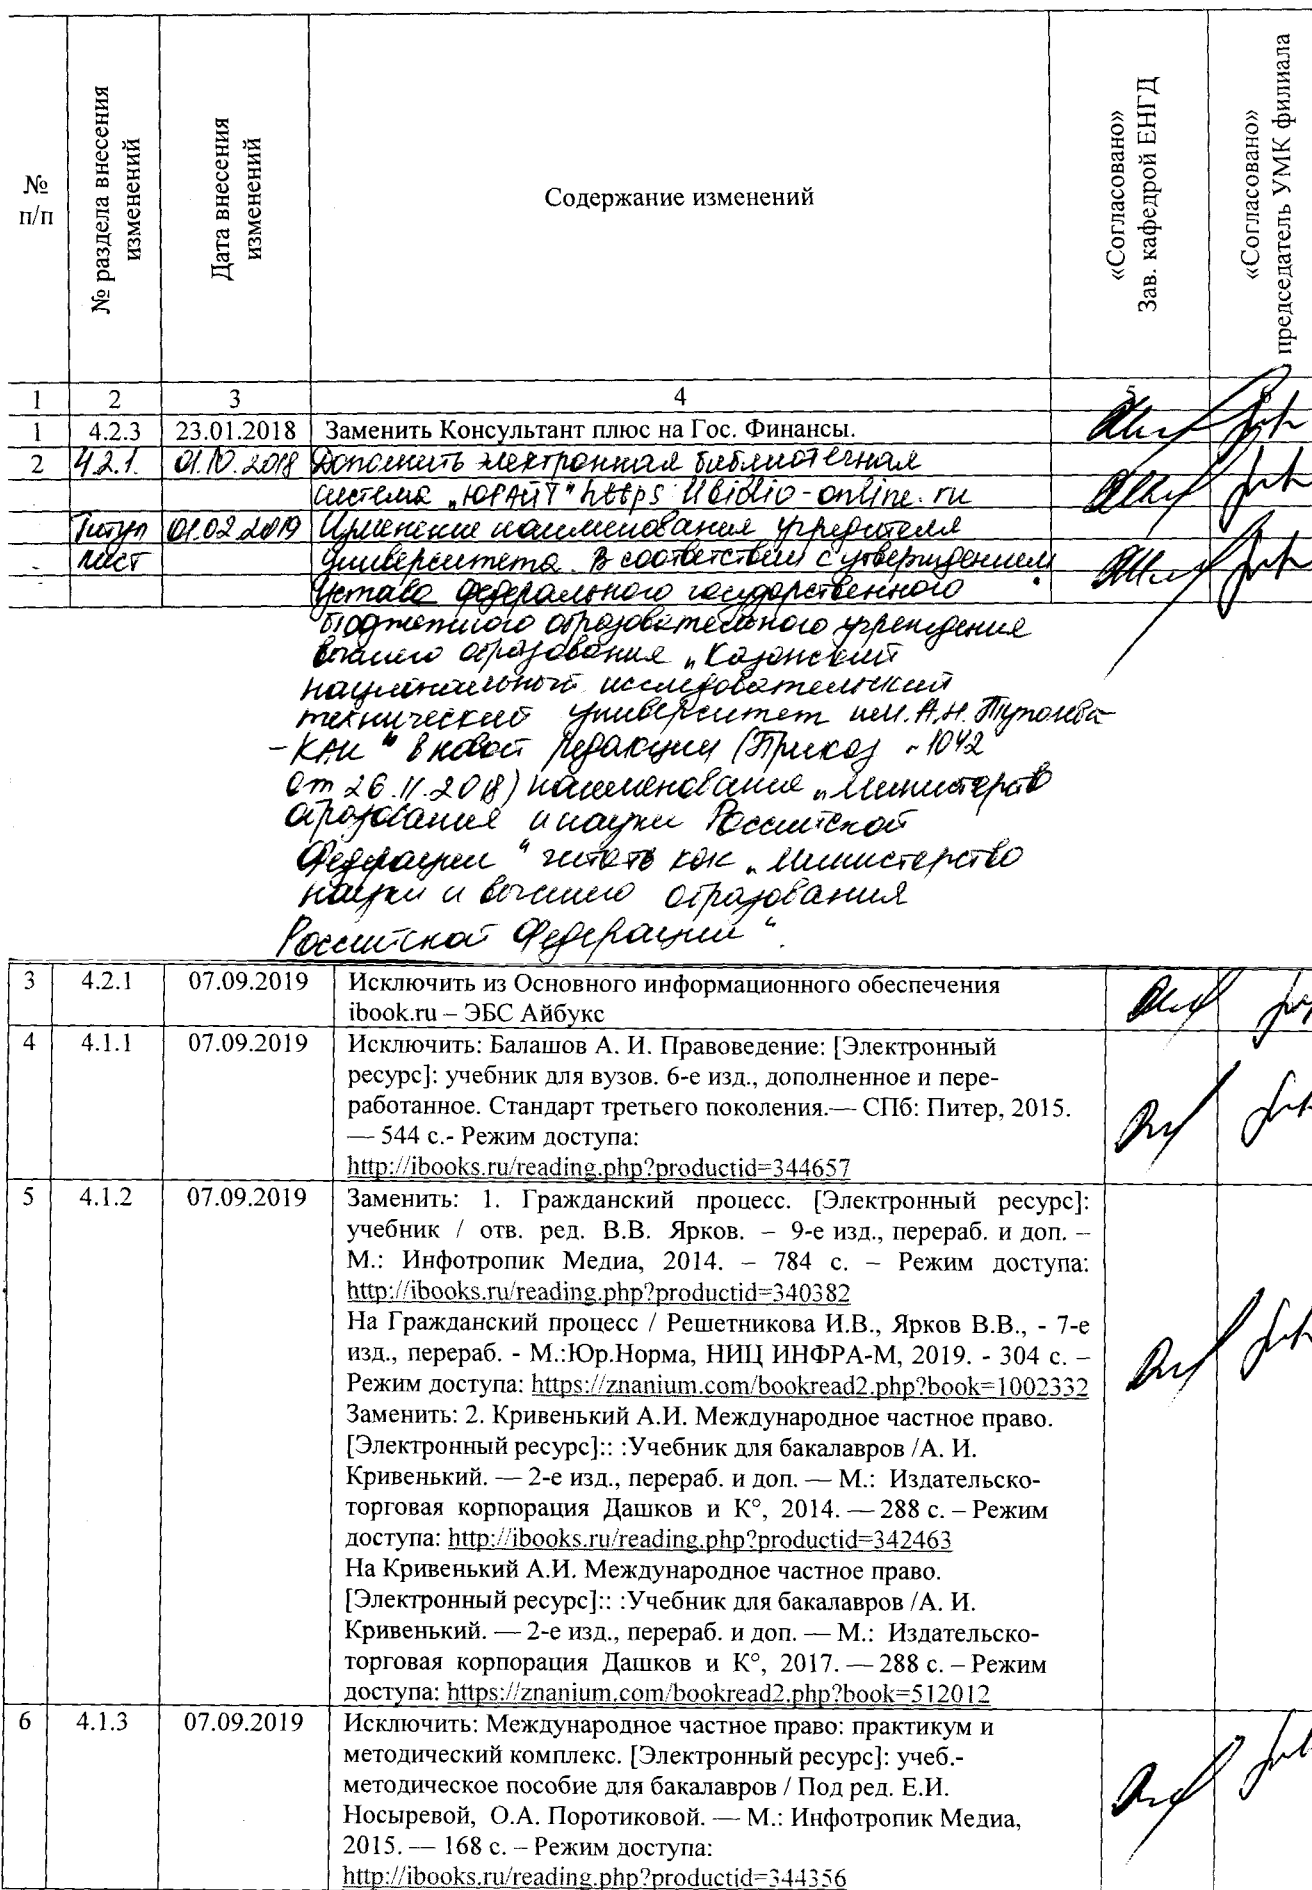 №
п/п
№ раздела внесения
изменений
Дата внесения
изменений
Содержание изменений
«Согласовано»
Зав. кафедрой ЕНГД
«Согласовано»
председатель УМК филиала
1 2 3 4 5 6
1 4.2.3 23.01.2018 Заменить Консультант плюс на Гос. Финансы.
2 4.2.1. 01.10.2018 Дополнить электронная библиотечная
система „ЮРАЙТ“ https://biblio-online.ru
Титул 01.02.2019 Изменение наименования учредителя
лист университета. В соответствии с утверждением
Устава федерального государственного
бюджетного образовательного учреждения
высшего образования „Казанский
национальный исследовательский
технический университет им. А.Н. Туполева
-КАИ“ в новой редакции (Приказ №1042
от 26.11.2018) наименования „Министерство
образования и науки Российской
Федерации“ читать как „Министерство
науки и высшего образования
Российской Федерации“.
3 4.2.1 07.09.2019 Исключить из Основного информационного обеспечения
ibook.ru – ЭБС Айбукс
4 4.1.1 07.09.2019 Исключить: Балашов А. И. Правоведение: [Электронный
ресурс]: учебник для вузов. 6-е изд., дополненное и пере-
работанное. Стандарт третьего поколения.— СПб: Питер, 2015.
— 544 с.- Режим доступа:
http://ibooks.ru/reading.php?productid=344657
5 4.1.2 07.09.2019 Заменить: 1. Гражданский процесс. [Электронный ресурс]:
учебник / отв. ред. В.В. Ярков. – 9-е изд., перераб. и доп. –
М.: Инфотропик Медиа, 2014. – 784 с. – Режим доступа:
http://ibooks.ru/reading.php?productid=340382
На Гражданский процесс / Решетникова И.В., Ярков В.В., - 7-е
изд., перераб. - М.:Юр.Норма, НИЦ ИНФРА-М, 2019. - 304 с. –
Режим доступа: https://znanium.com/bookread2.php?book=1002332
Заменить: 2. Кривенький А.И. Международное частное право.
[Электронный ресурс]:: :Учебник для бакалавров /А. И.
Кривенький. — 2-е изд., перераб. и доп. — М.: Издательско-
торговая корпорация Дашков и К°, 2014. — 288 с. – Режим
доступа: http://ibooks.ru/reading.php?productid=342463
На Кривенький А.И. Международное частное право.
[Электронный ресурс]:: :Учебник для бакалавров /А. И.
Кривенький. — 2-е изд., перераб. и доп. — М.: Издательско-
торговая корпорация Дашков и К°, 2017. — 288 с. – Режим
доступа: https://znanium.com/bookread2.php?book=512012
6 4.1.3 07.09.2019 Исключить: Международное частное право: практикум и
методический комплекс. [Электронный ресурс]: учеб.-
методическое пособие для бакалавров / Под ред. Е.И.
Носыревой, О.А. Поротиковой. — М.: Инфотропик Медиа,
2015. — 168 с. – Режим доступа:
http://ibooks.ru/reading.php?productid=344356